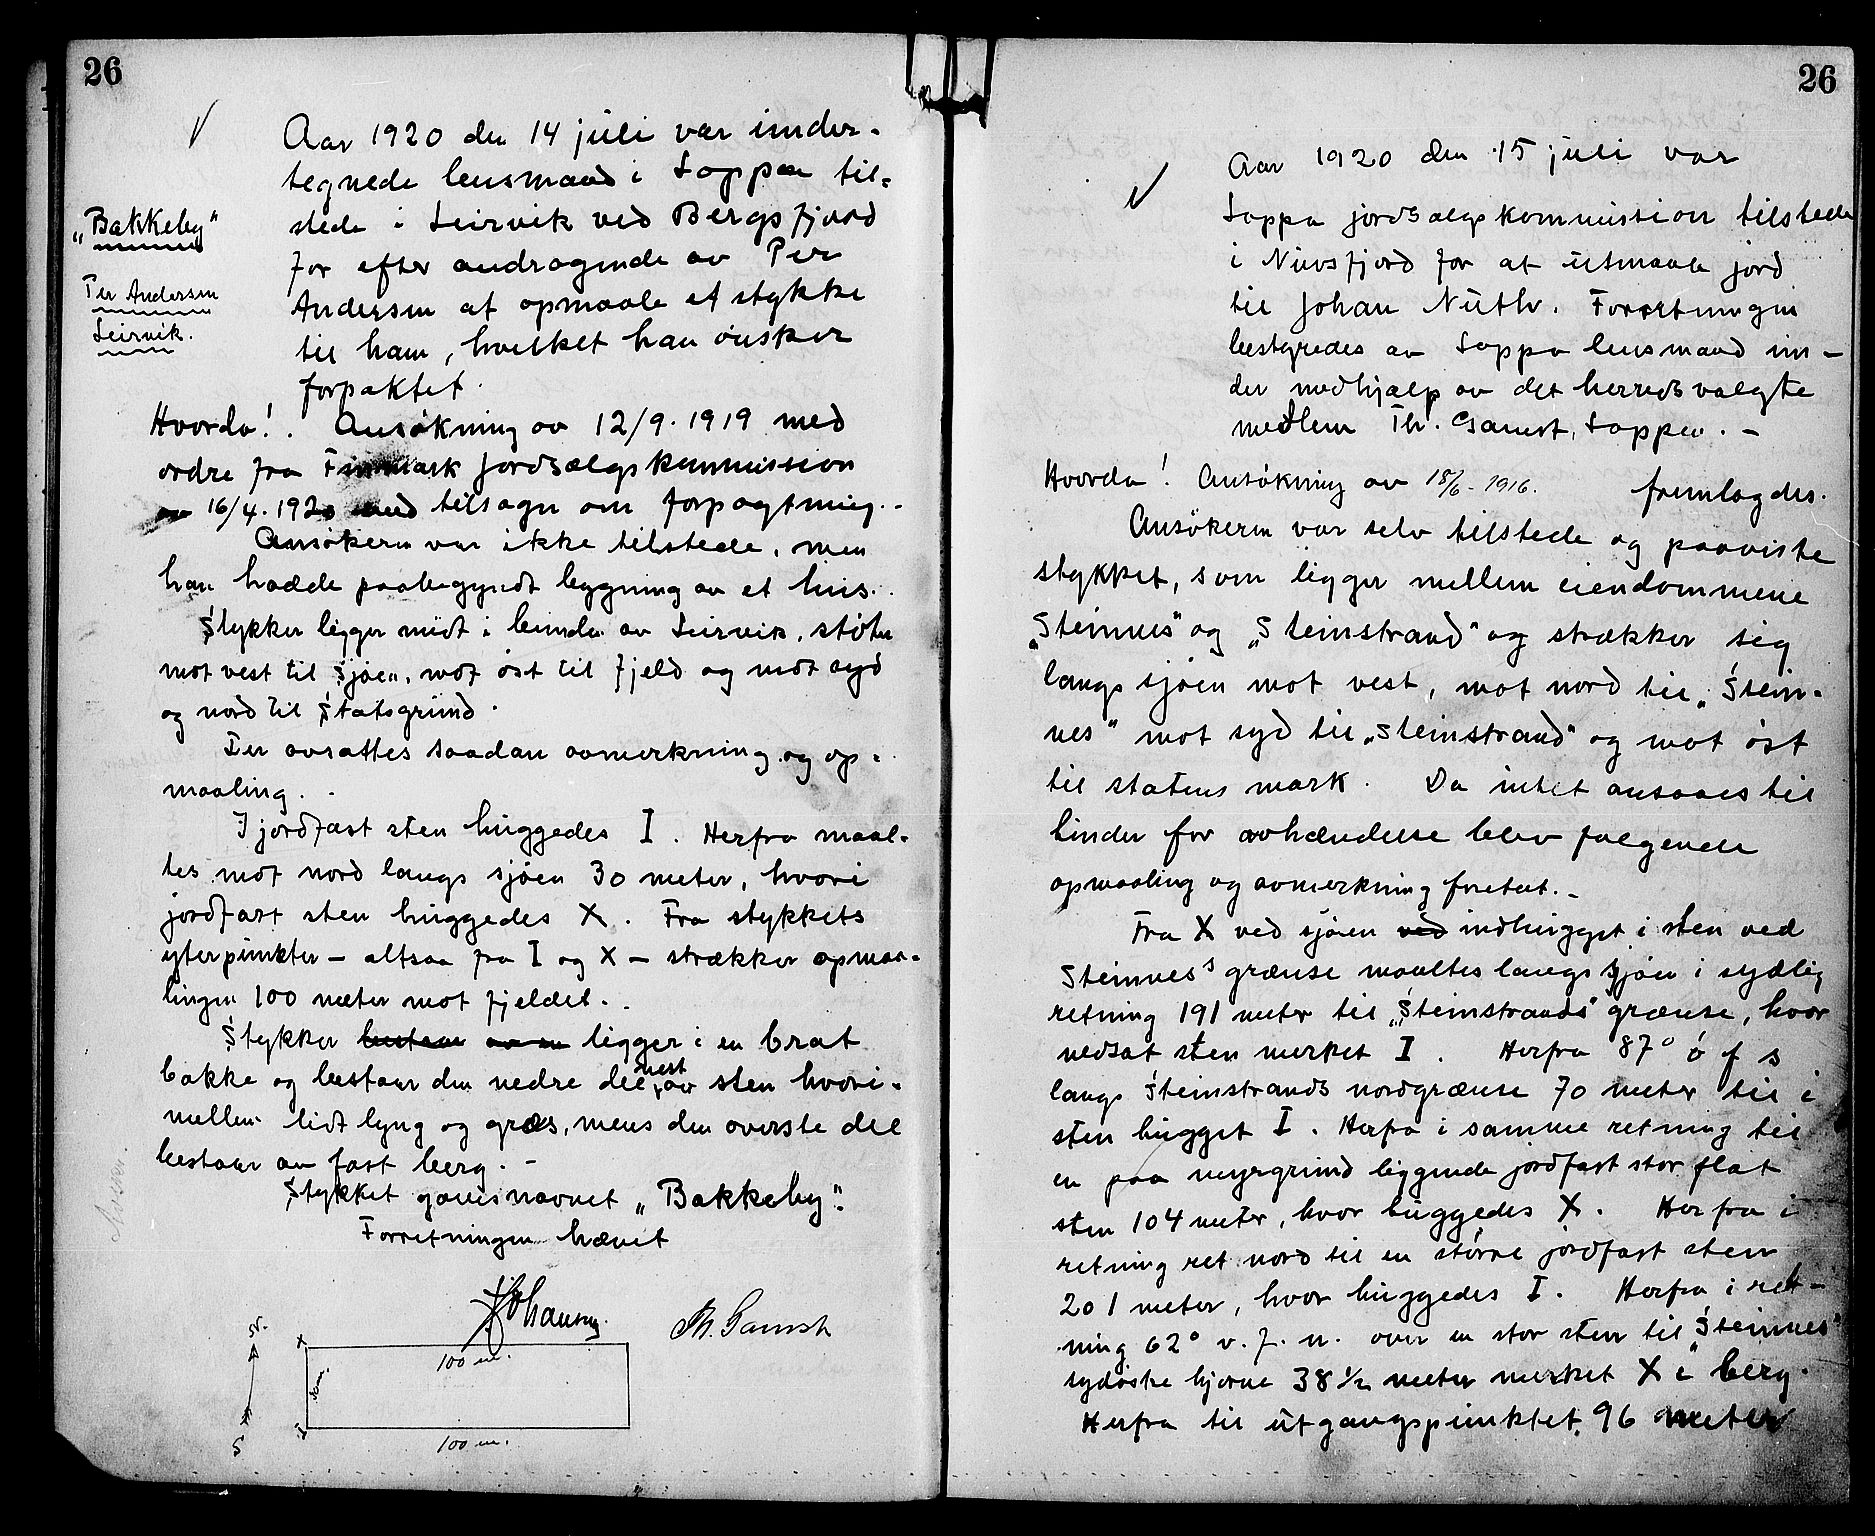 26
✓
Aar 1920 den 14 juli var under-
tegnede lensmand i Loppen til-
stede i Leirvik ved Bergsfjord
for efter andragende av Per
Andersen at opmaale et stykke
til ham, hvilket han ønsker
forpaktet.
"Bakkeby"
Per Andersen
Leirvik.
Hvorda! . Ansøkning av 12/9. 1919 med
ordre fra Finmark Jordsalgskommission
av 16/4. 1920 med tilsagn om forpagtning. -
Ansøkeren var ikke tilstede, men
han hadde paabegyndt bygning av et hus.
Stykker ligger midt i bunden av Leirvik, støter
mot vest til sjøen, mot øst til fjeld og mot syd
og nord til Statsgrund.
Der avsattes saadan avmerkning og op-
maaling.
I jordfast sten huggedes I. Herfra maal-
tes mot nord langs sjøen 30 meter, hvor i
jordfast sten huggedes X. Fra stykkets
yterpunkter - altsaa fra I og X - strækker opmaa-
lingen 100 meter mot fjeldet.
Stykker bestaar av en ligger i en brat
bakke og bestaar den nedre del mest av sten hvori-
mellem lidt lyng og græs, mens den øverste del
bestaar av fast berg. -
Stykket gaves navnet "Bakkeby".
Forretningen hævet
Johansen.
Th. Garnsh
N.
S
X
100 m.
30 m.
I
100 m.
26
✓
Aar 1920 den 15 juli var
Loppa jordsalgskommission tilstede
i Nuvsfjord for at utmaale jord
til Johan Nuth. Forretningen
bestyredes av Loppa lensmand un-
der medhjælp av det herredsvalgte
medlem Th. Garnst, Loppen. -
Hvorda! Ansøkning av 18/6 - 1916. fremlagdes.
Ansøkeren var selv tilstede og paaviste
stykket, som ligger mellem eiendommene
"Steinnes" og "Steinstrand" og strækker sig
langs sjøen mot vest, mot nord til "Stein-
nes" mot syd til "Steinstrand" og mot øst
til statens mark. Da intet ansaaes til
hinder for avhændelse blev følgende
opmaaling og avmerkning foretat. -
Fra X ved sjøen ved indhugget i sten ved
Steinnes's grænse maaltes langs sjøen i sydlig
retning 191 meter til "Steinstrands" grænse, hvor
nedsat sten merket I. Herfra 87° ø f s
langs Steinstrands nordgrænse 70 meter til i
sten hugget I. Herfra i samme retning til
en paa myrgrund liggende jordfast stor flat
sten 104 meter, hvor huggedes X. Herfra i
retning ret nord til en større jordfast sten
201 meter, hvor huggedes I. Herfra i ret-
ning 62° v. f. n. over en stor sten til "Steinnes"
sydøstre hjørne 38 1/2 meter merket X i berg.
Herfra til utgangspunktet 96 meter